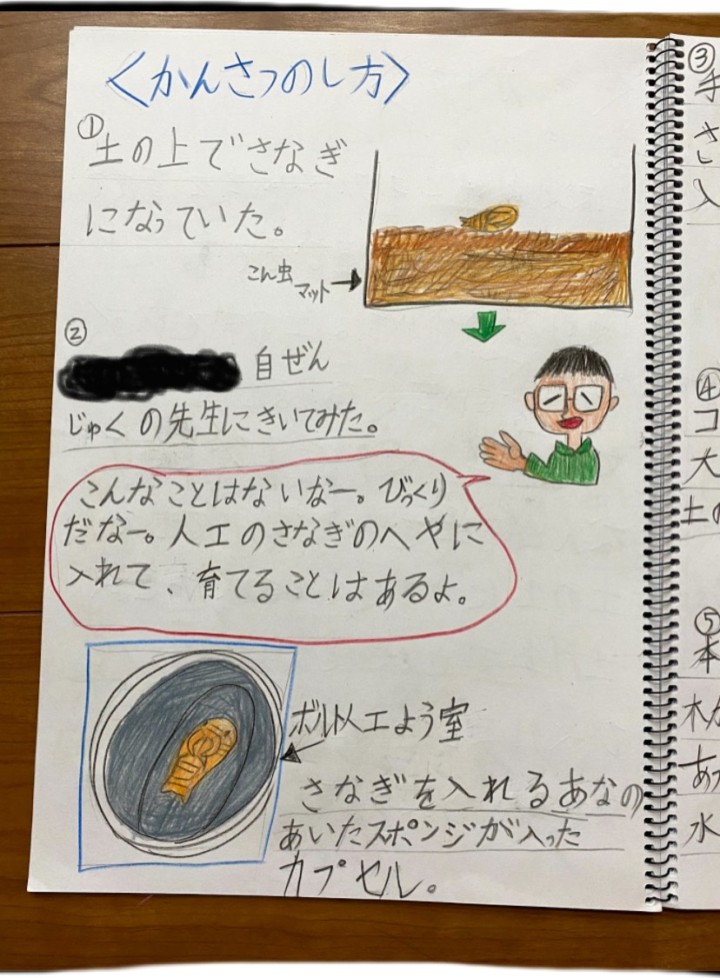 <かんさつのし方>
① 土の上でさなぎ
になっていた。
こん虫
マット
②
自ぜん
じゅくの先生にきいてみた。
こんなことはないなー。びっくり
だなー。人工のさなぎのへやに
入れて、育てることはあるよ。
ボルト人工よう室
さなぎを入れるあなの
あいたスポンジが入った
カプセル。
③
手
さ
入
④
コ
大
土の
⑤
本
水